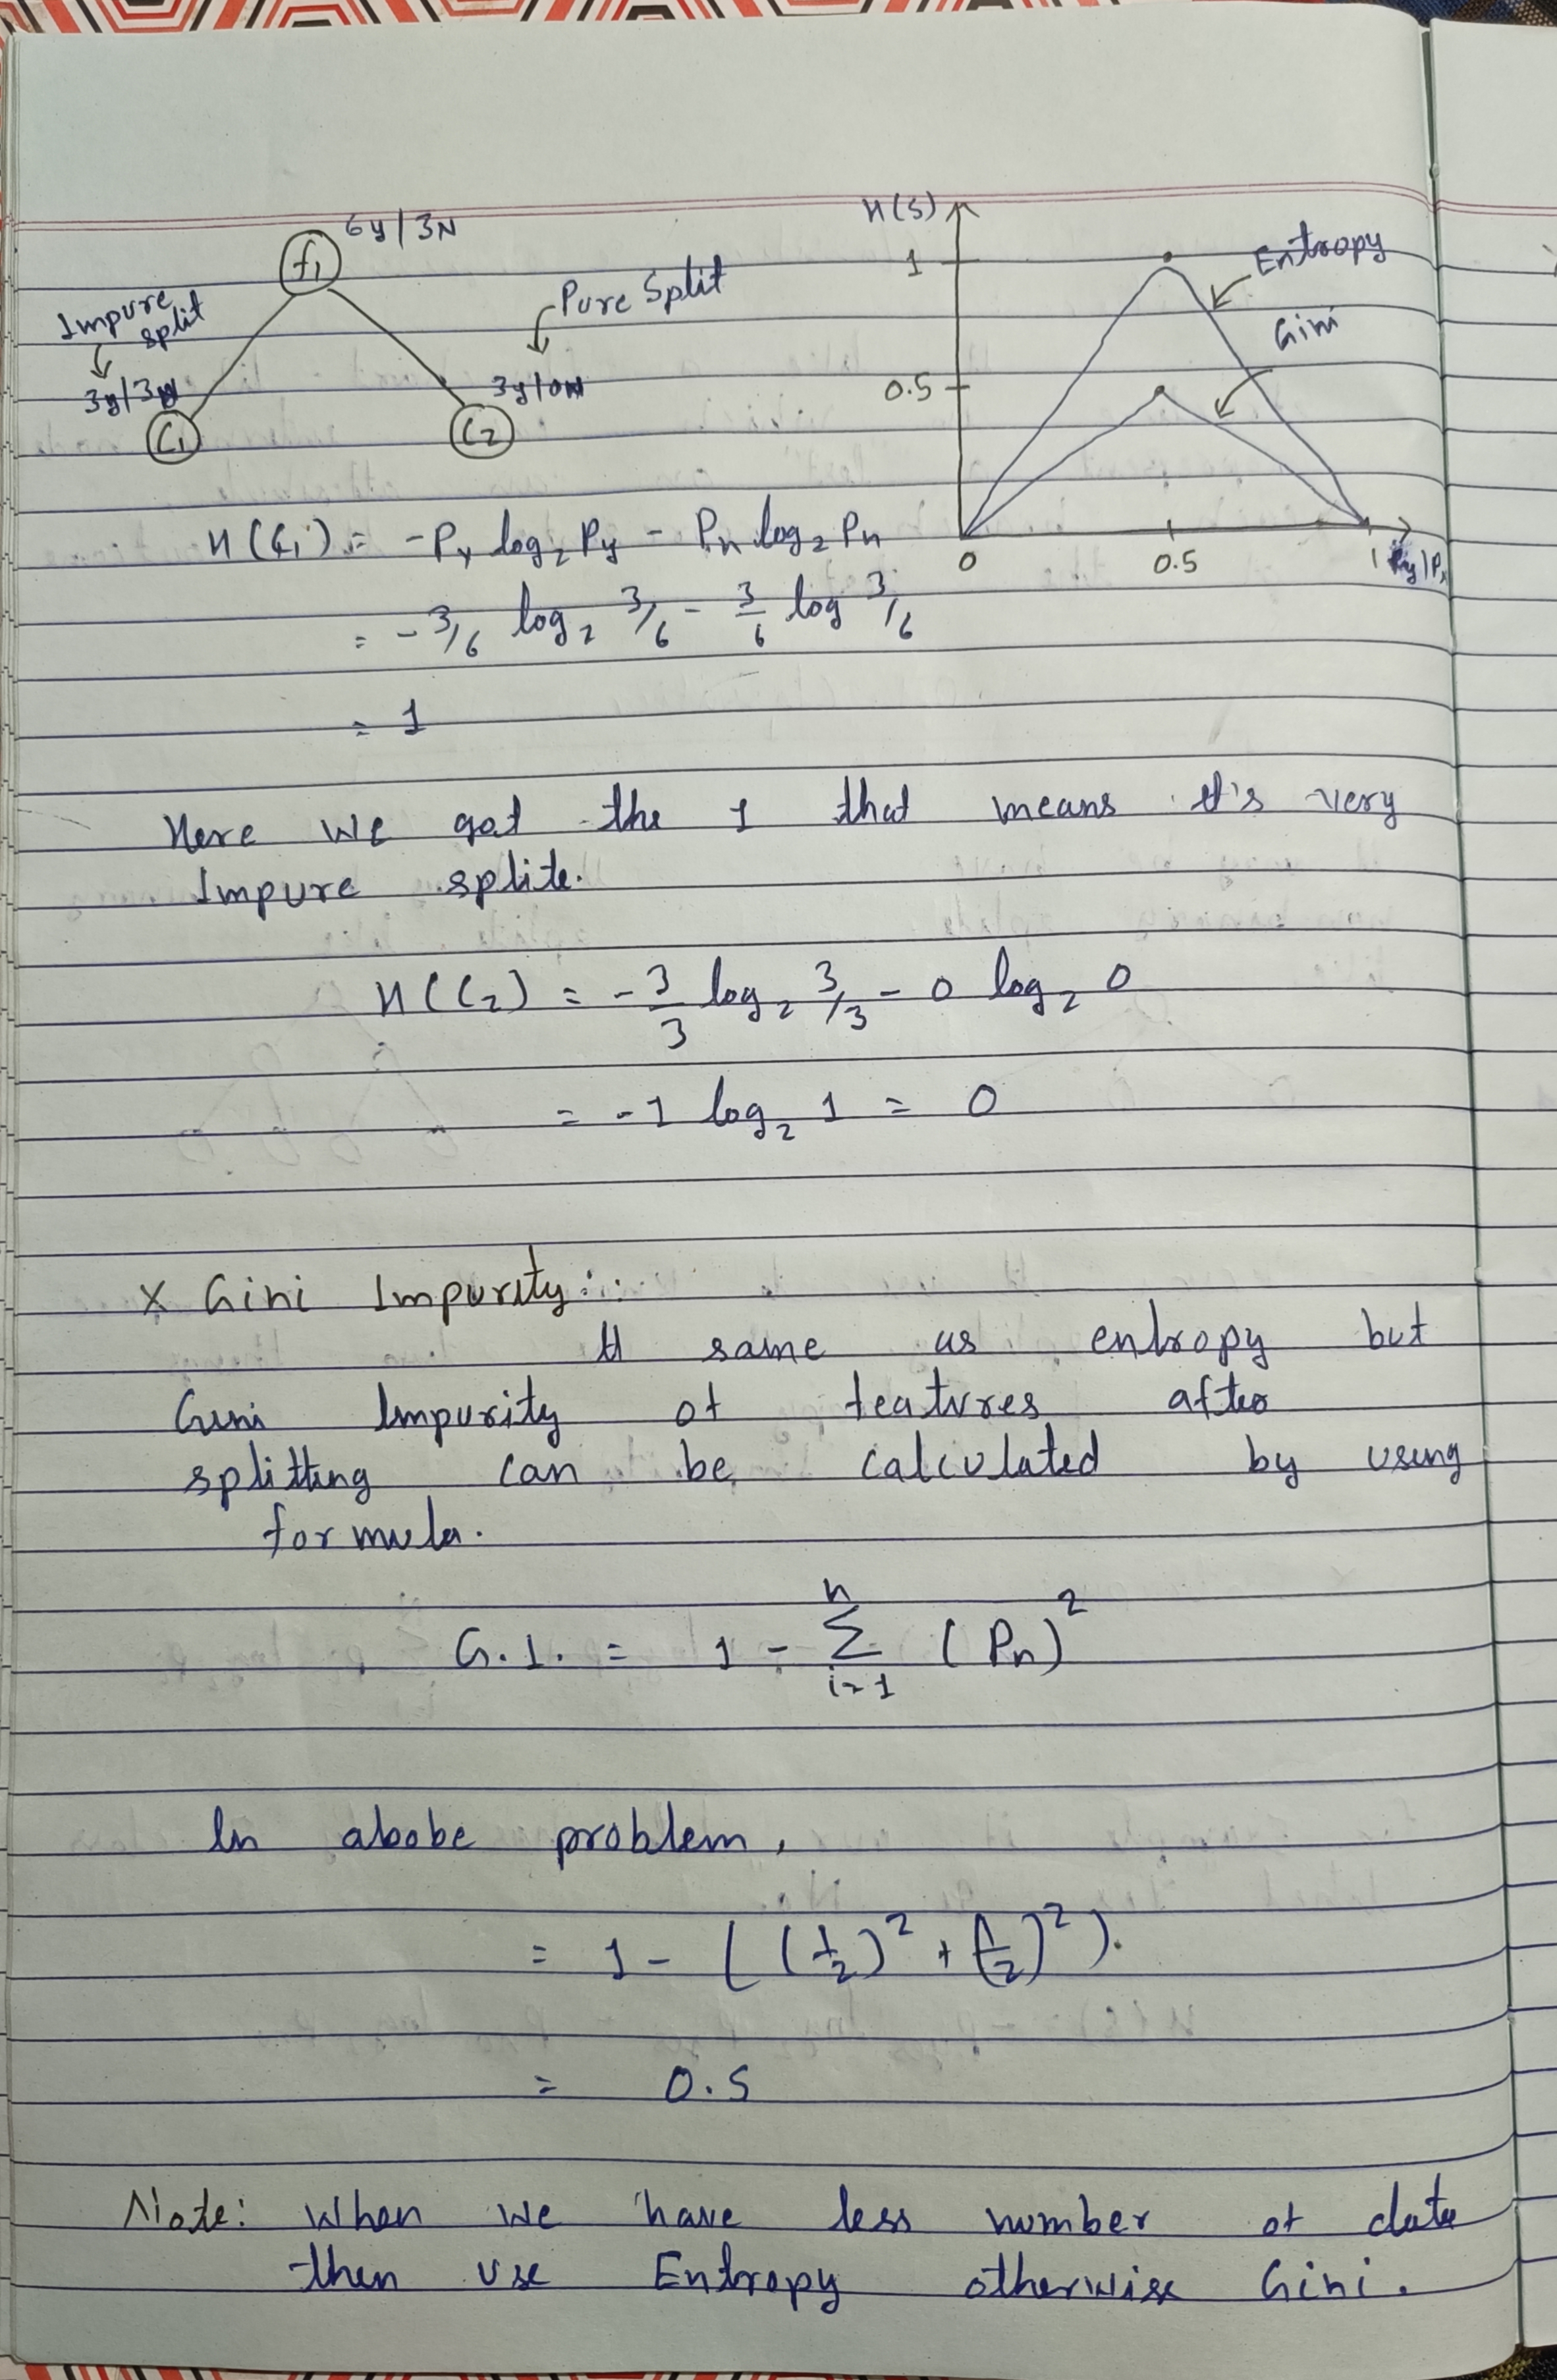 6y/3N
f1
Impure
split
3y/3N
C1
Pure Split
3y/0N
C2
H(S)
1
0.5
0
0.5
1
Entropy
Gini
H(C1) = -Py log2 Py - Pn log2 Pn
= -3/6 log2 3/6 - 3/6 log 3/6
= 1
Here we got the 1 that means It's very
Impure splite.
H(C2) = -3/3 log2 3/3 - 0 log2 0
= -1 log2 1 = 0
x Gini Impurity:
It same as entropy but
Gini Impurity of features after
splitting can be calculated by using
formula.
G.I. = 1 - n Σ i=1 (Pn)²
In abobe problem,
= 1 - ((1/2)² + (1/2)²).
= 0.5
Note: When we have less number of data
then use Entropy otherwise Gini.